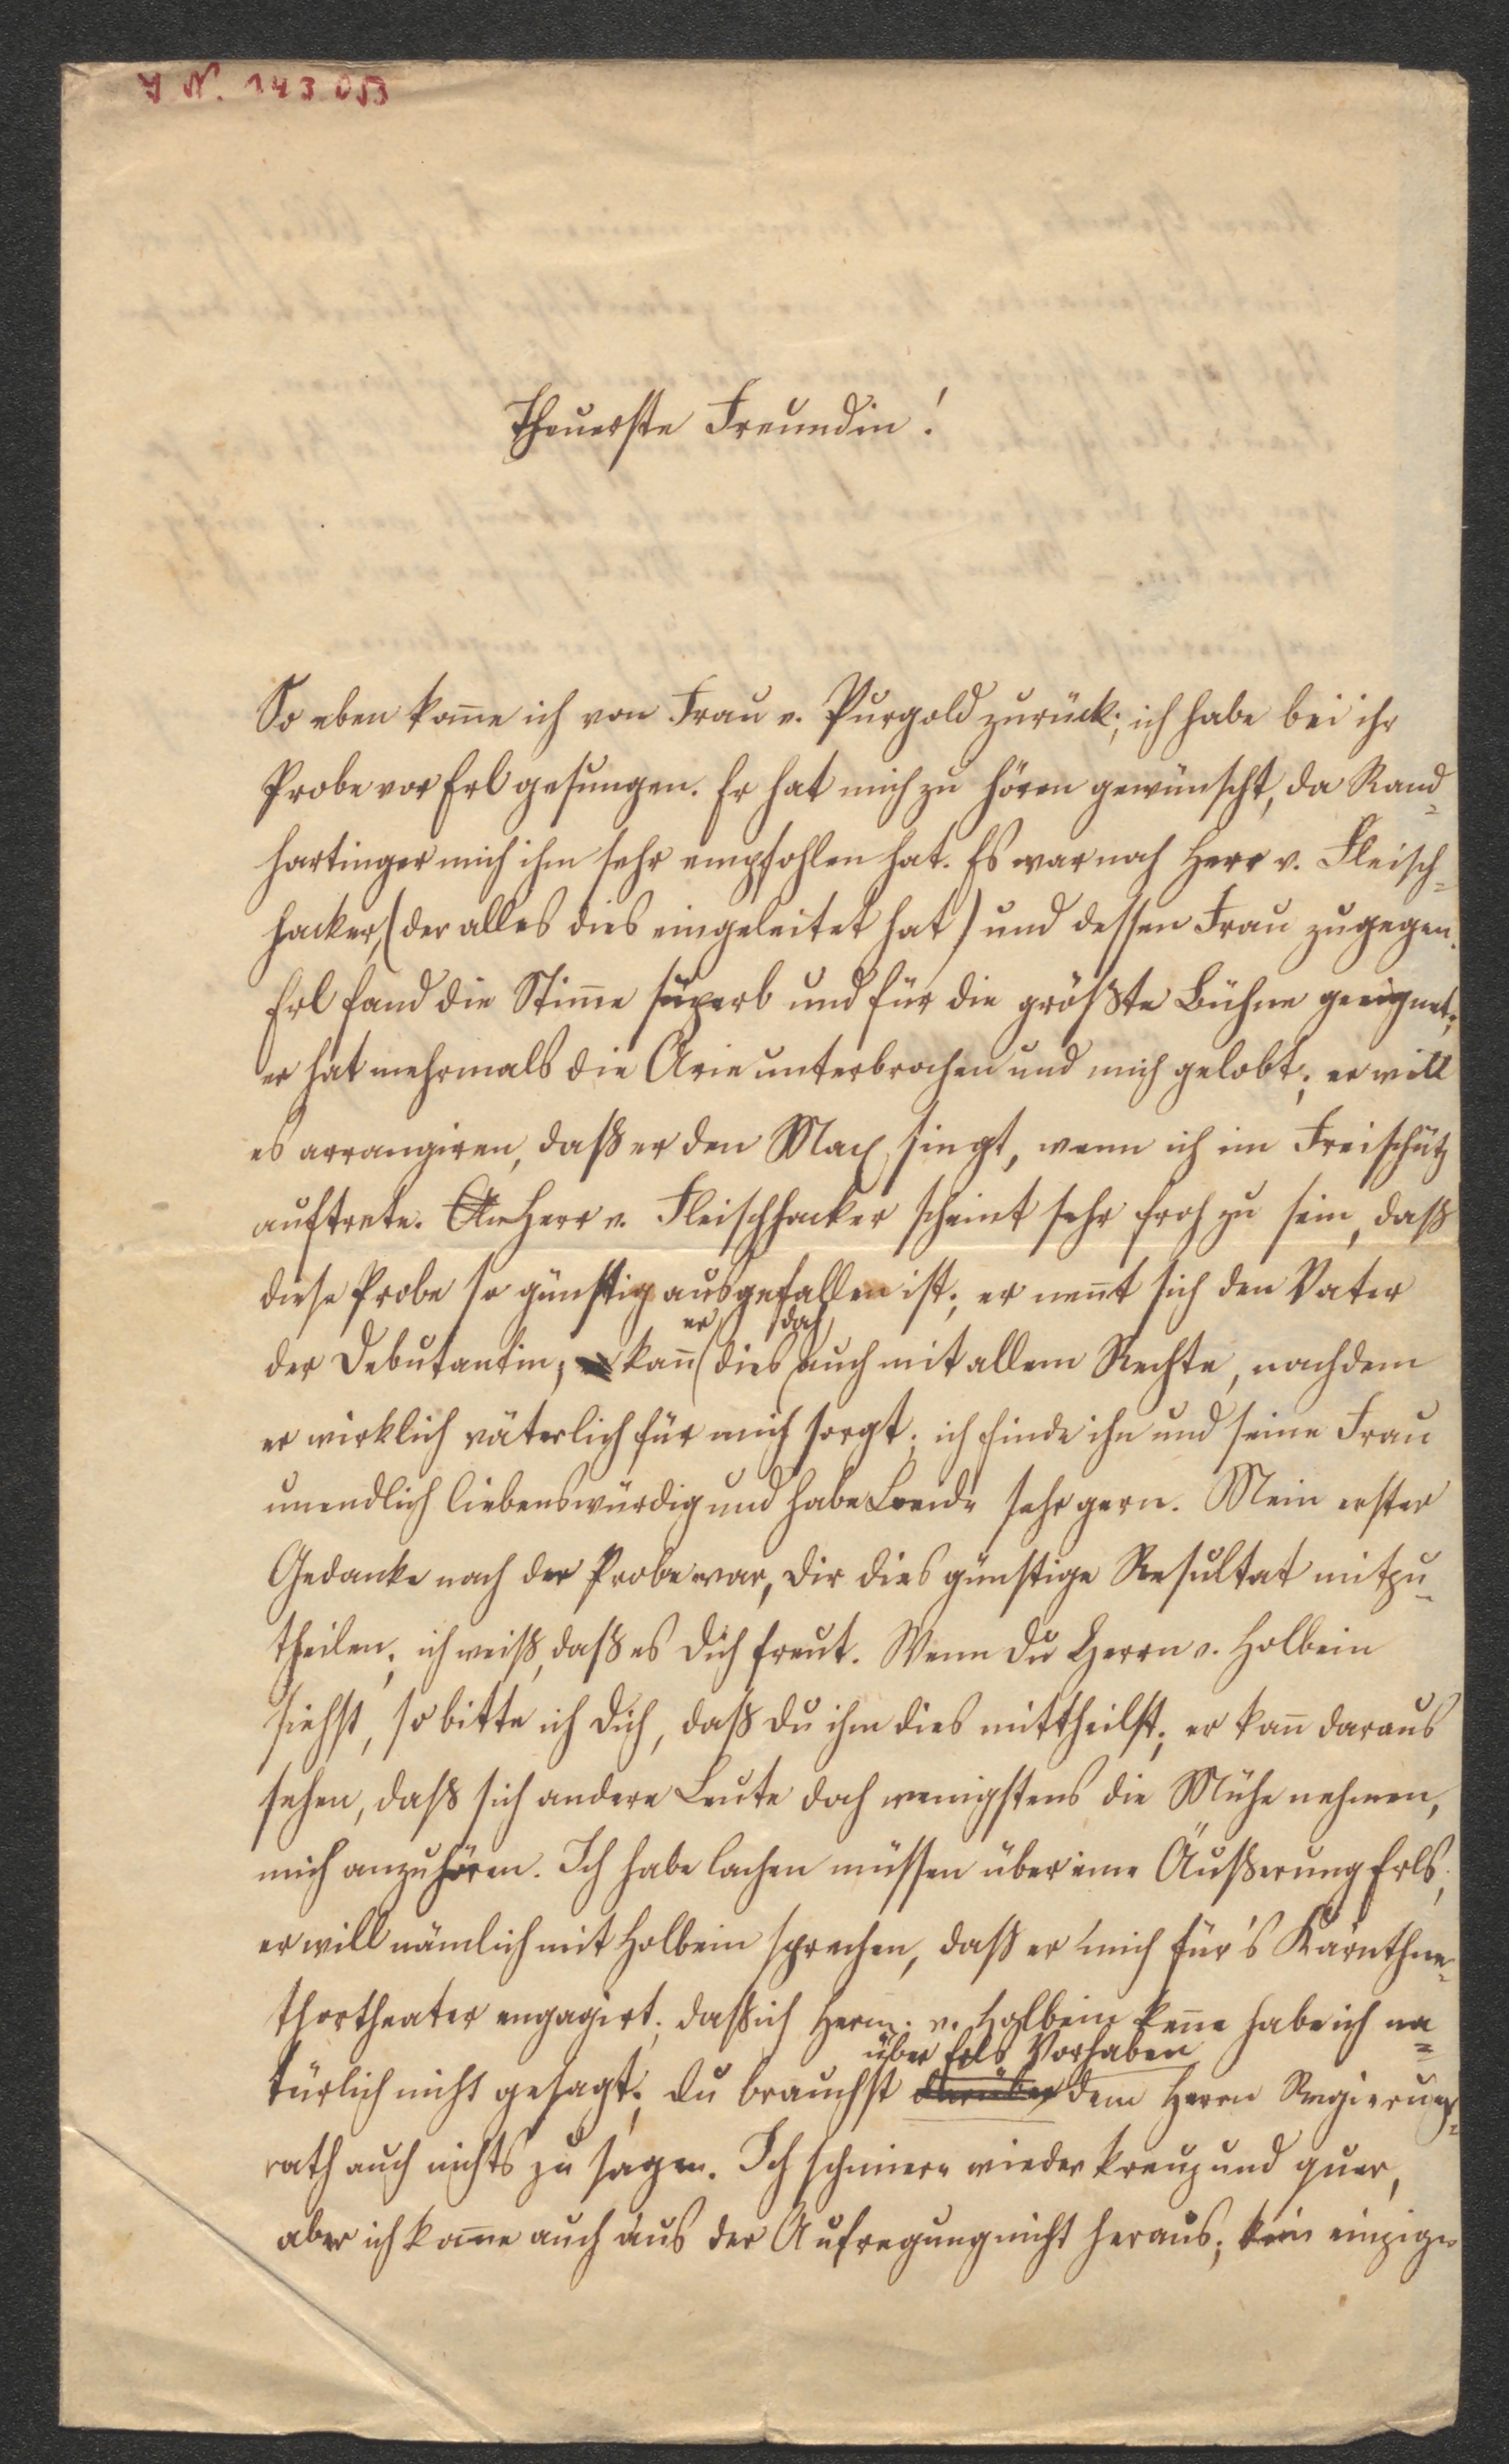 I N. 143.053
Theuerste Freundin!
So eben kom̄e ich von Frau v. Purgold zurück; ich habe bei ihr
Probe vor Erl gesungen. Er hat mich zu hören gewünscht, da Rand=
hartinger mich ihm sehr empfohlen hat. Es war noch Herr v. Fleisch=
hacker, (der alles dies eingeleitet hat) und dessen Frau zugegen.
Erl fand die Stim̄e süperb und für die größte Bühne geeignet;
er hat mehrmals die Arie unterbrochen und mich gelobt; er will
es arrangiren, daß er den Max singt, wenn ich im Freischütz
auftrete. Herr v. Fleischhacker scheint sehr froh zu sein, daß
diese Probe so günstig ausgefallen ist; er nen̄t sich den Vater
er doch
der Debutantin; kan̄ dies auch mit allem Rechte, nachdem
er wirklich väterlich für mich sorgt; ich finde ihn und seine Frau
unendlich liebenswürdig und habe Beide sehr gern. Mein erster
Gedanke nach der Probe war, Dir dies günstige Resultat mitzu=
theilen; ich weiß, daß es Dich freut. Wenn Du Herrn v. Holbein
siehst, so bitte ich Dich, daß Du ihm dies mittheilst; er kan̄ daraus
sehen, daß sich andere Leute doch wenigstens die Mühe nehmen,
mich anzuhören. Ich habe lachen müssen über eine Äußerung Erls;
er will nämlich mit Holbein sprechen, daß er mich für's Kärnthne=
thortheater engagirt; daß ich Herrn v. Holbein ken̄e habe ich na=
über Erls Vorhaben
türlich nicht gesagt; Du brauchst darüber dem Herrn Regierungs=
rath auch nichts zu sagen. Ich schmiere wieder kreuz und quer,
aber ich kom̄e auch aus der Aufregung nicht heraus; kein einziger